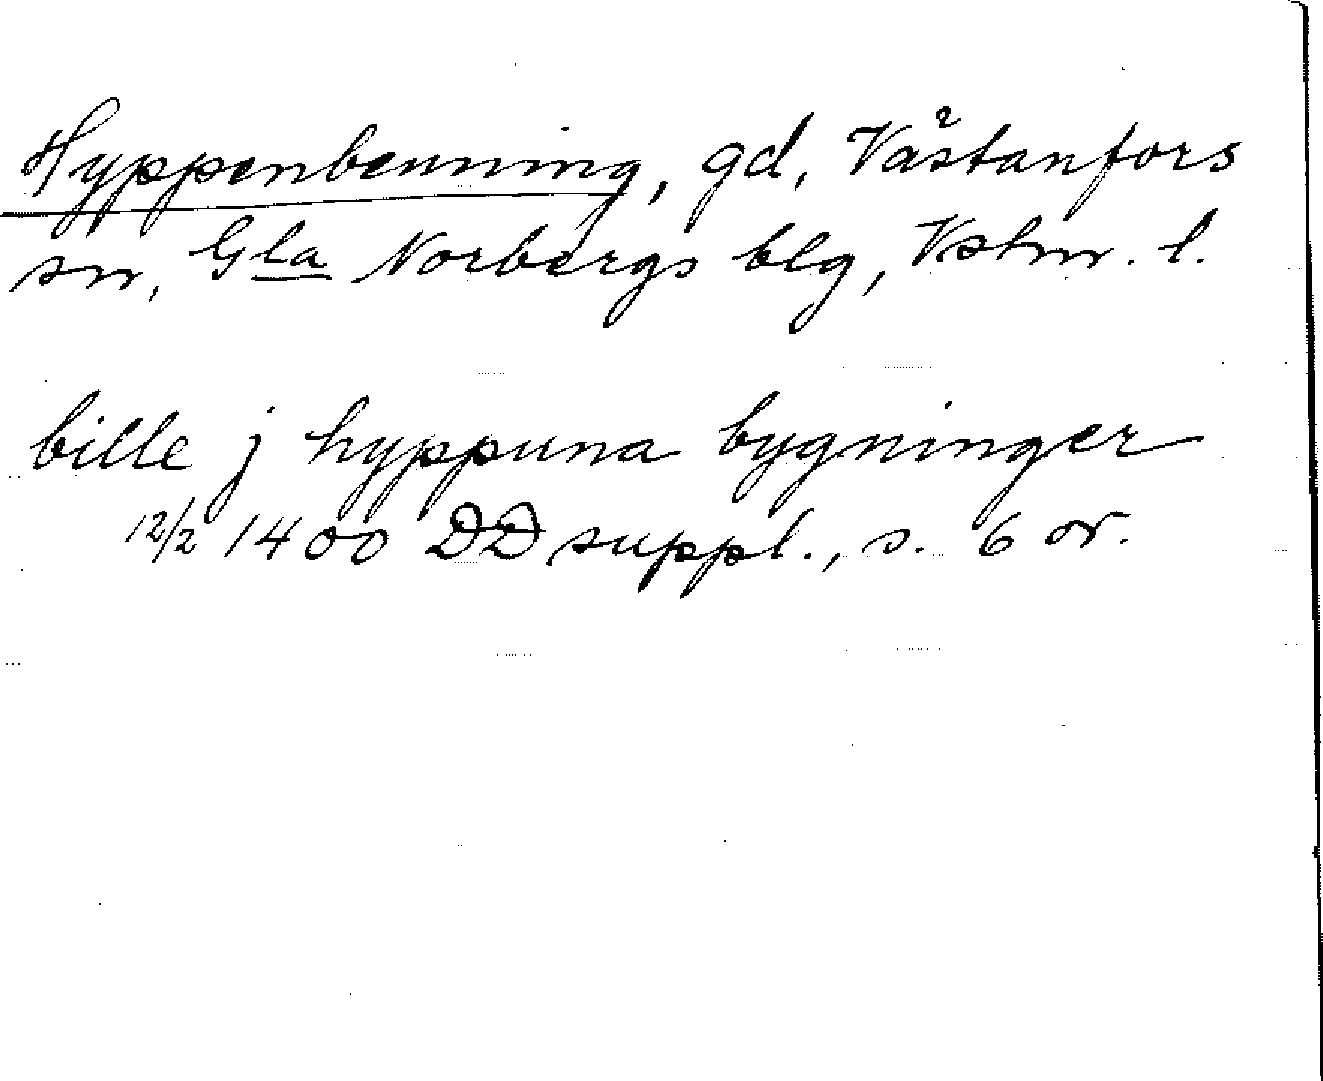 Hyppenbenning, gd, Västanfors
sn, Gla Norbergs blg, Vstm. l.
bille j hyppuna bygninger
12/2 1400 DD suppl., s. 6 or.